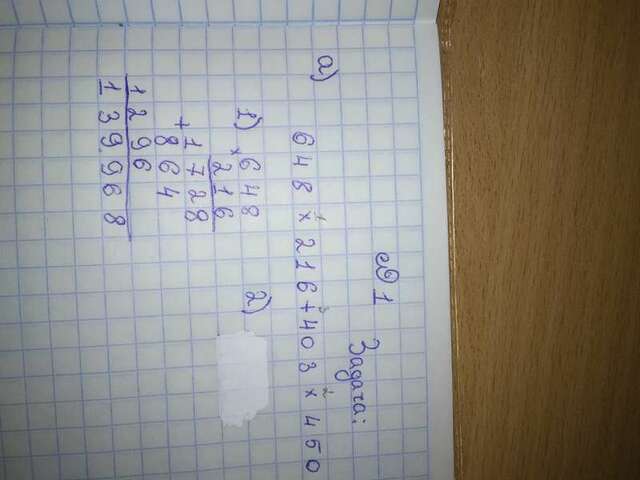 №1 Задача:
а)
1 3 2
648 × 216 + 403 × 450
1) × 648 2)
216
1728
+ 864
1296
139968